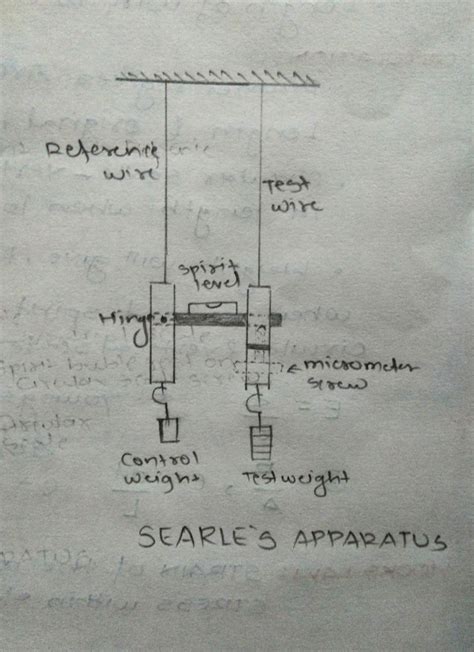 Reference
wire
Test
wire
Spirit
level
Hinge
micrometer
screw
Control
weight
Test weight
SEARLE'S APPARATUS